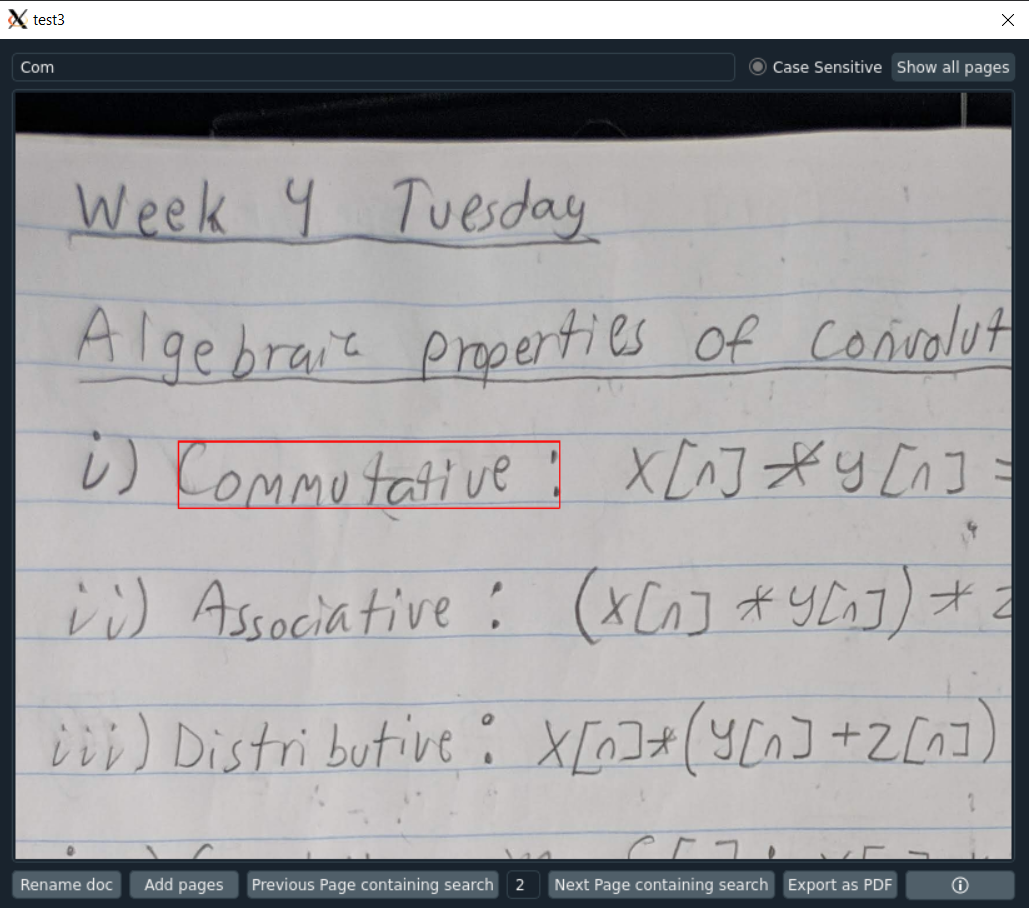 test3
Com Case Sensitive Show all pages
Week 4 Tuesday
Algebraic properties of Convolut
i) Commutative : x[n] * y[n] =
ii) Associative : (x[n] * y[n]) * z
iii) Distributive : x[n]*(y[n]+z[n])
Rename doc Add pages Previous Page containing search 2 Next Page containing search Export as PDF